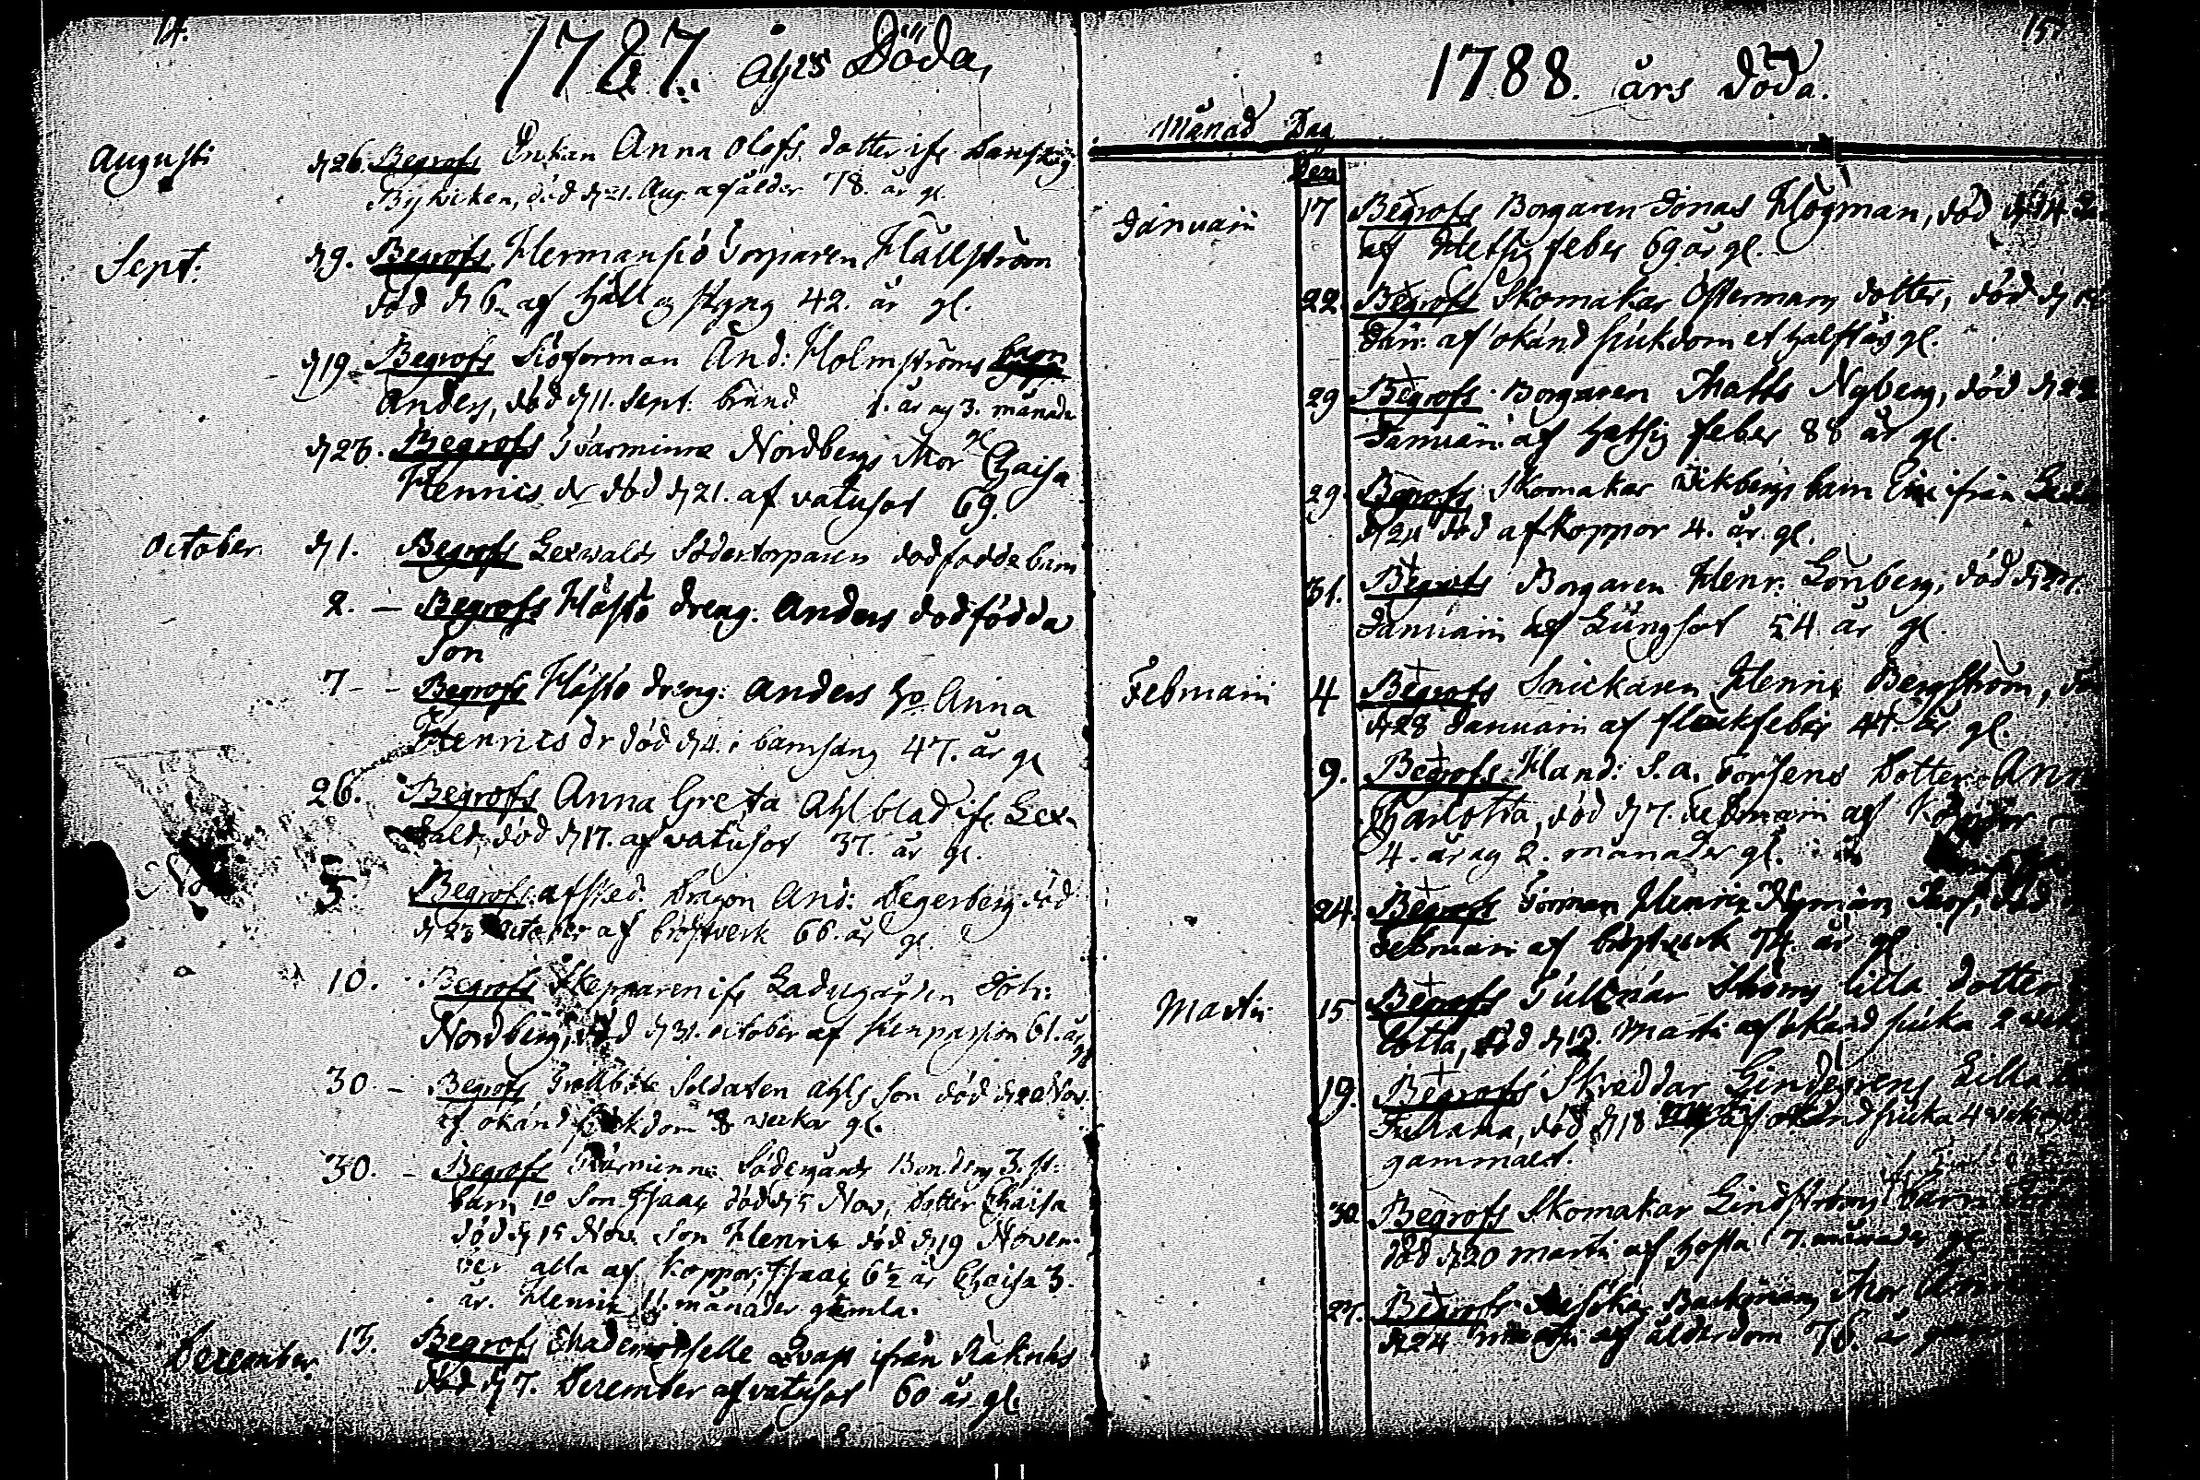 14.
1787. års Döda,
Augusti d 26. Begrofs Enkan Anna Olofs dotter ifr. Danskog
Bykvicken, död d 21. Aug. af ålder 78. år gl.
Sept. d 9. Begrofs Hermansiö Torparen Hällström
död d 6. af håll og styng 42. år gl.
d 19. Begrofs Siöforman And: Holmströms barn
Anders, död d 11. Sept. 1. år og 3. månader
d 23. Begrofs Tvärminne Nordbergs Mor Chaisa
Henrics dr död d 21. af vatusot 69.
October d 1. Begrofs Lexvalds Södertorparens dodfödde barn
2. — Begrofs Hästö dreng. Anders dodfödda
Son
7 - - Begrofs Hästö dreng: Anders ho Anna
Henrics dr död d 4. i barnsäng 47. år gl
26. Begrofs Anna Greta Ahlblad ifr Lex-
vald, död d 17. af vatusot 37. år gl.
5 Begrofs afsked. Dragon And: Degerberg död
d 23 October af bröstverk 66. år gl.
10. Begrofs Skepparen ifr Ladugården Joh:
Nordberg, död d 31. October af stenpassion 61. år
gl
30. — Begrofs Soldaten Ahls Son död d 20 Nov.
af okänd siukdom 8 veckor gl.
30. — Begrofs Tvärminne Södergårds Bondens 3. st.
barn 1o Son Isaac död d 5 Nov, Dotter Chaisa
död d 15 Nov. Son Henric död d 19 Novem-
ber alla af koppor, Isaac 6½ år Chaisa 3.
år. Henric 11. månader gamla.
December. 13. Begrofs Mademoiselle Qvast ifrån
död d 7. December af vatusot 60 år gl.
15.
1788. års döda.
Månad Dag
Den
Januarii 17 Begrofs Borgaren Jonas Högman, död d 14
af Hetsig feber 69 år gl.
22. Begrofs Skomakar Östermans dotter, död d
Jan: af okänd siukdom et halft år gl.
29 Begrofs Borgaren Matts Nyberg, död d 22
Januarii af hetsig feber 88 år gl.
29. Begrofs Skomakar Wikbergs barn ifrån
d 24 död af koppor 4. år gl.
31. Begrofs Borgaren Henr. Lönberg, död d 27.
Januarii af Lungsot 54 år gl.
Februarii 4 Begrofs Snickaren Henric Bergström,
d 28 Januarii af fläckfeber 44. år gl.
9. Begrofs Hand: S. a. Forsens Dotter
Charlotta, död d 7. Februarii af koppor
4. år og 2. månader gl.
24. Begrofs Torman Henric Nyman
Februarii af bröstverk 74. år gl
Martii 15 Begrofs Tullnär Ströms lilla dotter
Lotta, död d 12. Martii af okänd siuka 2
19. Begrofs Skräddar Lindegrens Lilla
Juliana, död d 18 af okänd siuka 4
gammalt.
30 Begrofs Skomakar Lindströms barn
död d 20 Martii af hosta 7. månader gl
27. Begrofs Backmans Mor
d 24 Martii af ålderdom 76. år